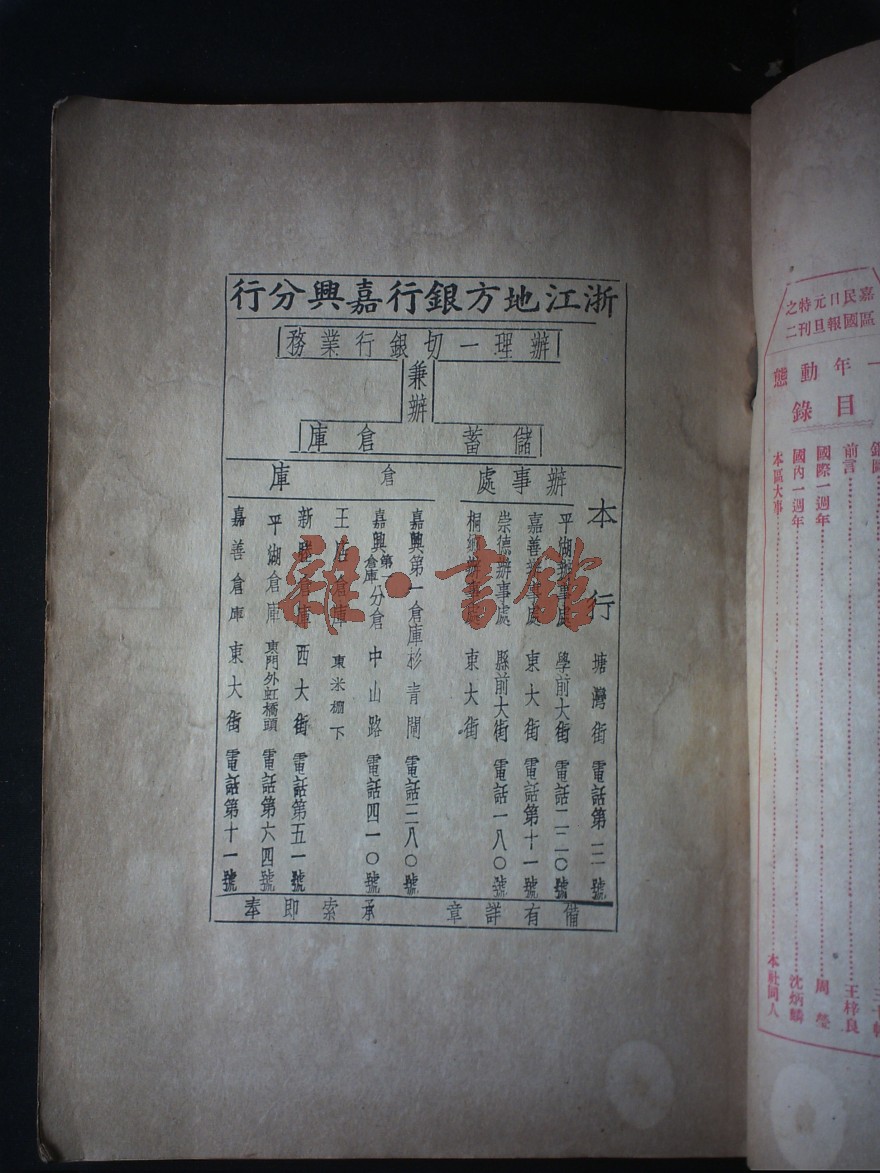 浙江地方銀行嘉興分行
辦理一切銀行業務
兼辦
儲蓄倉庫
辦事處
本行 塘灣街 電話第三一號
平湖辦事處 學前大街 電話二二〇號
嘉善辦事處 東大街 電話第十一號
崇德辦事處 縣前大街 電話一八〇號
桐鄉辦事處 東大街
倉庫
嘉興第一倉庫 杉青閘 電話三八〇號
嘉興第一倉庫分倉 中山路 電話四一〇號
王店倉庫 東米棚下
新塍倉庫 西大街 電話第五一號
平湖倉庫 東門外虹橋頭 電話第六四號
嘉善倉庫 東大街 電話第十一號
備有詳章 承索即奉
雜·書館
嘉區民國日報元旦特刊之二
一年動態
目錄
前言 王梓良
國際一週年 周瑩
國內一週年 沈炳麟
本區大事 本社同人